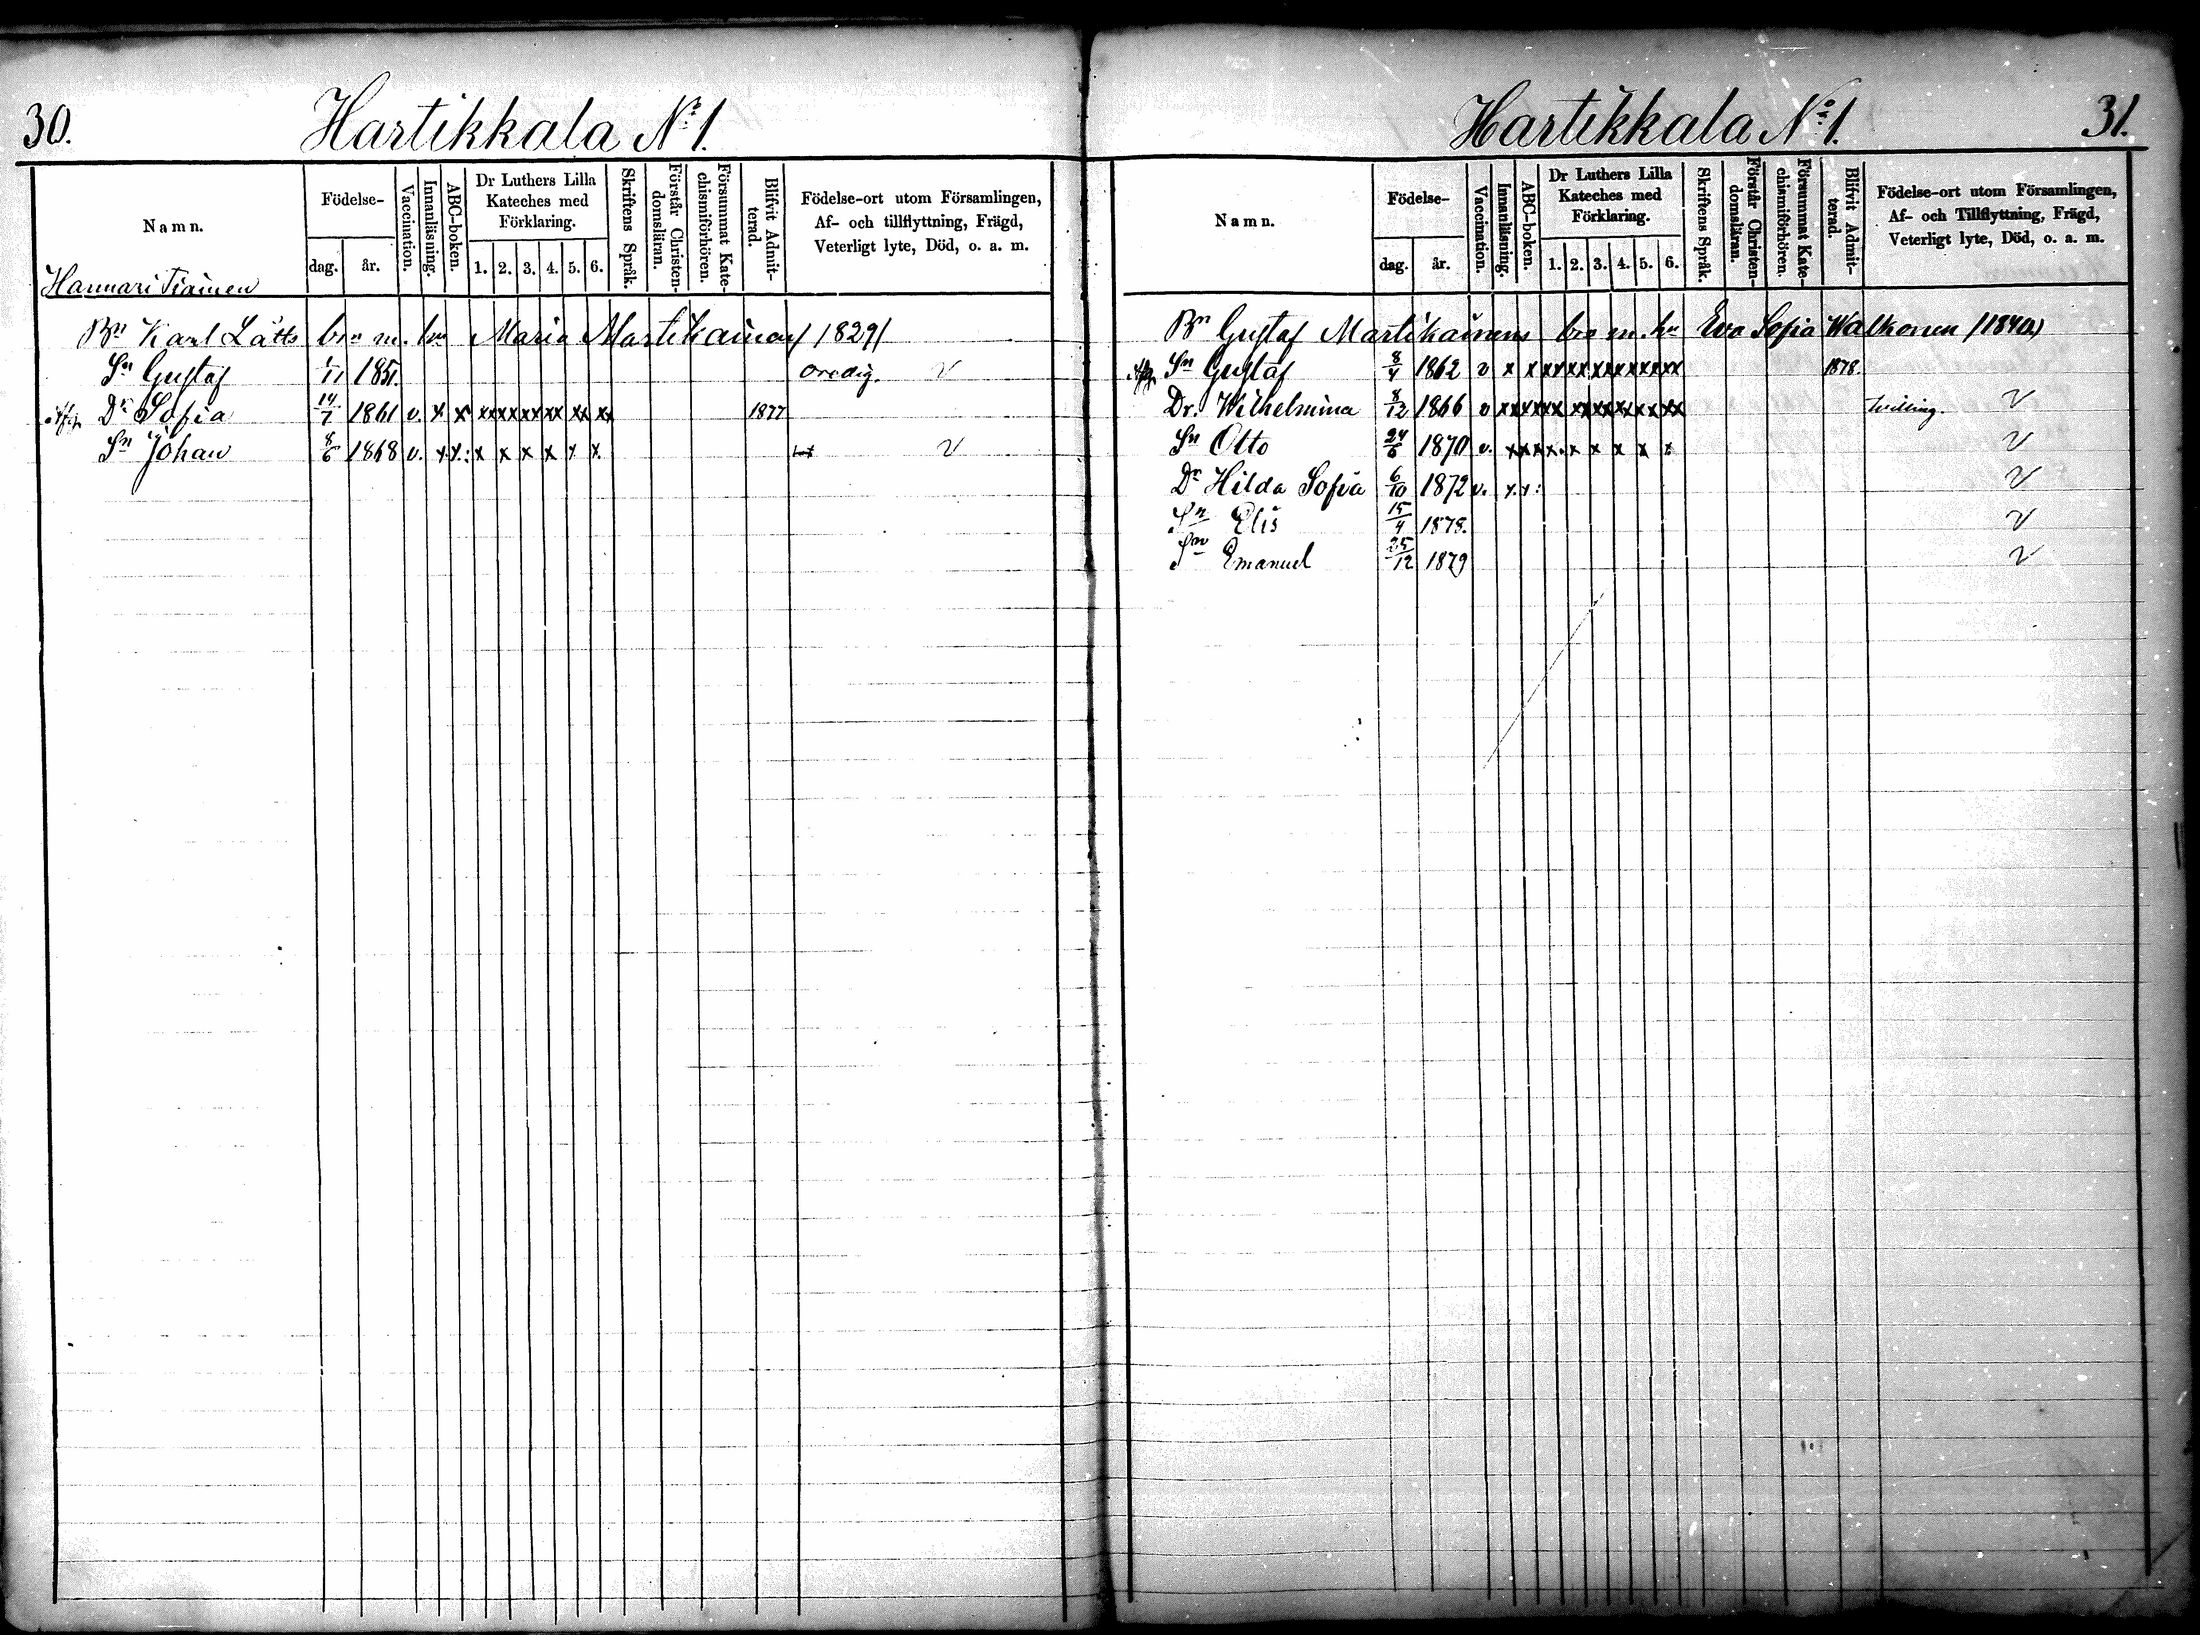 30.
Hartikkala No 1.
Namn.
Födelse-
dag.
år.
Vaccination.
Innanläsning.
ABC-boken.
Dr Luthers Lilla
Kateches med
Förklaring.
1. 2. 3. 4. 5. 6.
Skriftens Språk.
Förstår Christen-
domsläran.
Försummat Kate-
chismiförhören.
Blifvit Admit-
terad.
Födelse-ort utom Församlingen,
Af- och tillflyttning, Frägd,
Veterligt lyte, Död, o. a. m.
Hannari Tiainen
Bn Karl Lätts brn m. hu Maria Martikainen /1829/
Sn Gustaf 1/11 1851. oredig. v
Dr Sofia 14/7 1861 v. x x xx xx xx xx xx xx 1877
Sn Johan 8/6 1868 v. x x: x x x x x x. v
Hartikkala No 1.
31.
Namn.
Födelse-
dag.
år.
Vaccination.
Innanläsning.
ABC-boken.
Dr Luthers Lilla
Kateches med
Förklaring.
1. 2. 3. 4. 5. 6.
Skriftens Språk.
Förstår Christen-
domsläran.
Försummat Kate-
chismiförhören.
Blifvit Admit-
terad.
Födelse-ort utom Församlingen,
Af- och Tillflyttning, Frägd,
Veterligt lyte, Död, o. a. m.
Bn Gustaf Martikainens brn m. hu Eva Sofia Walkonen /1840/
Sn Gustaf 8/4 1862 v x x xx xx xx xx xx xx 1878.
Dr. Wilhelmina 8/12 1866 v xx xx xx xx xx xx xx xx tvilling. v
Sn Otto 24/6 1870 v. xx xx. x x x x x v
Dr Hilda Sofia 6/10 1872 v. x x: v
Sn Elis 15/4 1878. v
Sn Emanuel 25/12 1879 v